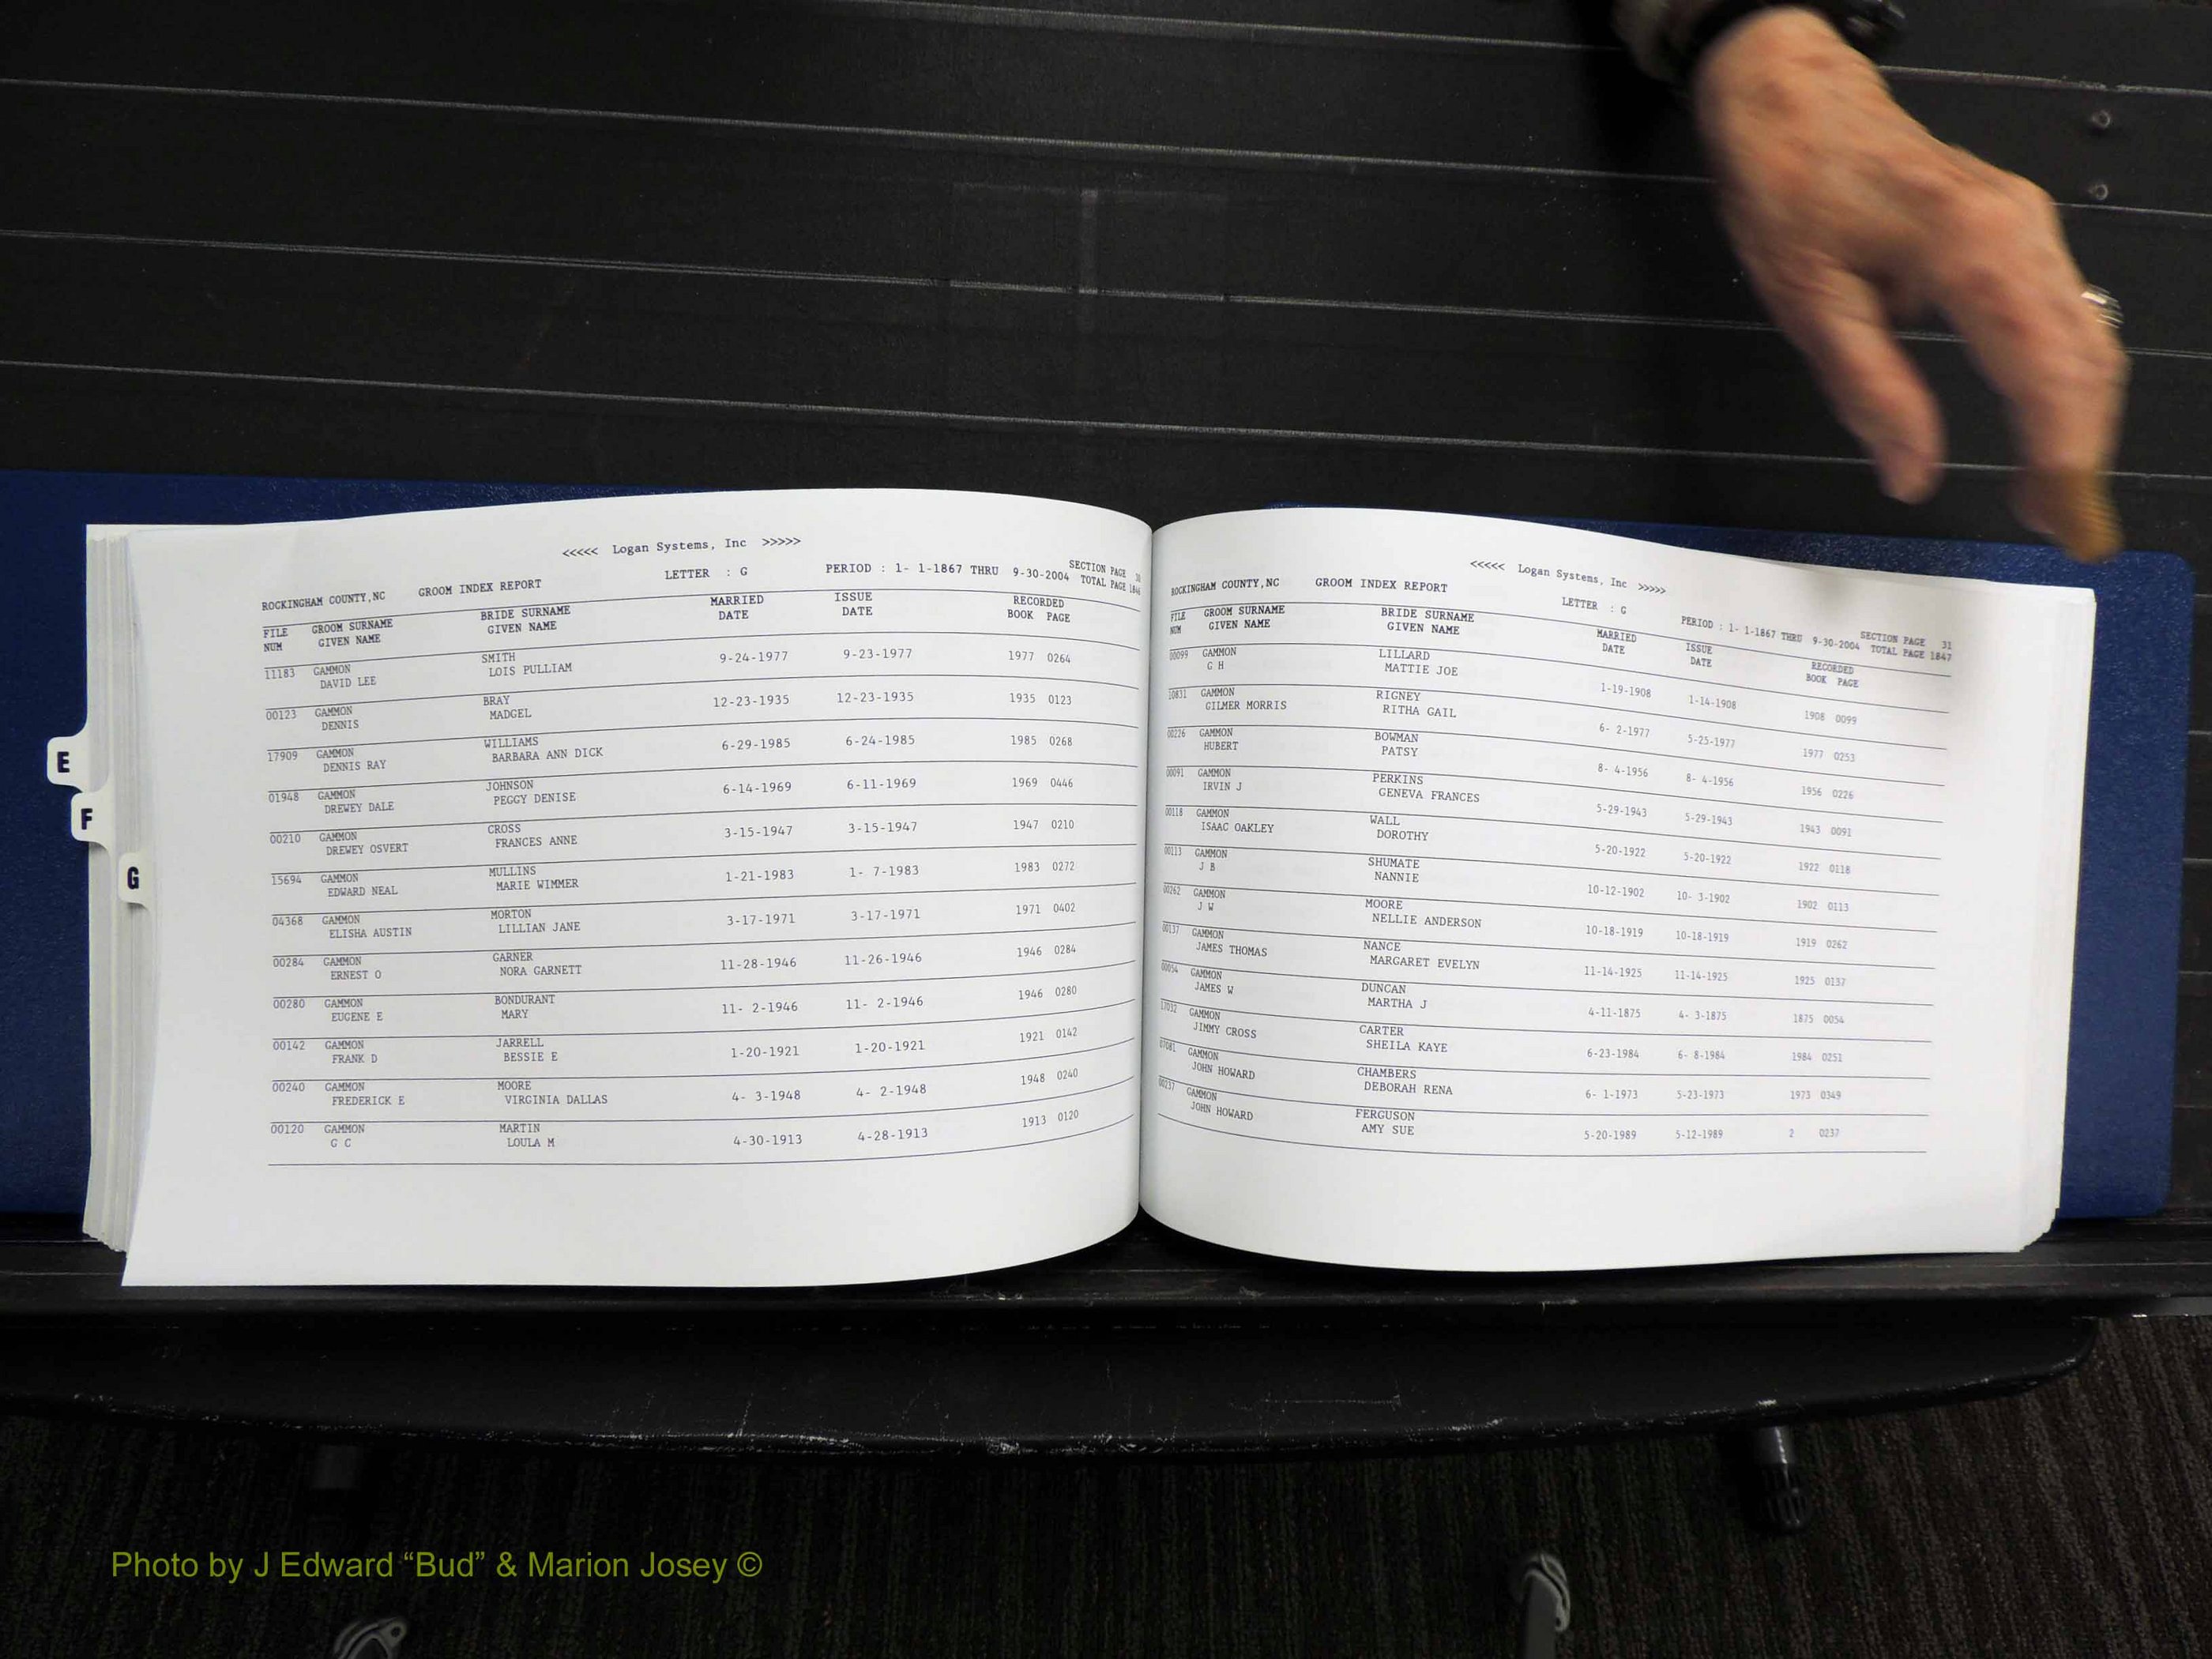 <<<<< Logan Systems, Inc >>>>>
ROCKINGHAM COUNTY,NC GROOM INDEX REPORT LETTER : G PERIOD : 1- 1-1867 THRU 9-30-2004 SECTION PAGE 30
TOTAL PAGE 1846
FILE GROOM SURNAME BRIDE SURNAME MARRIED ISSUE RECORDED
NUM GIVEN NAME GIVEN NAME DATE DATE BOOK PAGE
11183 GAMMON SMITH 9-24-1977 9-23-1977 1977 0264
DAVID LEE LOIS PULLIAM
00123 GAMMON BRAY 12-23-1935 12-23-1935 1935 0123
DENNIS MADGEL
17909 GAMMON WILLIAMS 6-29-1985 6-24-1985 1985 0268
DENNIS RAY BARBARA ANN DICK
01948 GAMMON JOHNSON 6-14-1969 6-11-1969 1969 0446
DREWEY DALE PEGGY DENISE
00210 GAMMON CROSS 3-15-1947 3-15-1947 1947 0210
DREWEY OSVERT FRANCES ANNE
15694 GAMMON MULLINS 1-21-1983 1- 7-1983 1983 0272
EDWARD NEAL MARIE WIMMER
04368 GAMMON MORTON 3-17-1971 3-17-1971 1971 0402
ELISHA AUSTIN LILLIAN JANE
00284 GAMMON GARNER 11-28-1946 11-26-1946 1946 0284
ERNEST O NORA GARNETT
00280 GAMMON BONDURANT 11- 2-1946 11- 2-1946 1946 0280
EUGENE E MARY
00142 GAMMON JARRELL 1-20-1921 1-20-1921 1921 0142
FRANK D BESSIE E
00240 GAMMON MOORE 4- 3-1948 4- 2-1948 1948 0240
FREDERICK E VIRGINIA DALLAS
00120 GAMMON MARTIN 4-30-1913 4-28-1913 1913 0120
G C LOULA M
E
F
G
<<<<< Logan Systems, Inc >>>>>
ROCKINGHAM COUNTY,NC GROOM INDEX REPORT LETTER : G PERIOD : 1- 1-1867 THRU 9-30-2004 SECTION PAGE 31
TOTAL PAGE 1847
FILE GROOM SURNAME BRIDE SURNAME MARRIED ISSUE RECORDED
NUM GIVEN NAME GIVEN NAME DATE DATE BOOK PAGE
00099 GAMMON LILLARD 1-19-1908 1-14-1908 1908 0099
G H MATTIE JOE
10831 GAMMON RIGNEY 6- 2-1977 5-25-1977 1977 0253
GILMER MORRIS RITHA GAIL
00226 GAMMON BOWMAN 8- 4-1956 8- 4-1956 1956 0226
HUBERT PATSY
00091 GAMMON PERKINS 5-29-1943 5-29-1943 1943 0091
IRVIN J GENEVA FRANCES
00118 GAMMON WALL 5-20-1922 5-20-1922 1922 0118
ISAAC OAKLEY DOROTHY
00113 GAMMON SHUMATE 10-12-1902 10- 3-1902 1902 0113
J B NANNIE
00262 GAMMON MOORE 10-18-1919 10-18-1919 1919 0262
J W NELLIE ANDERSON
00137 GAMMON NANCE 11-14-1925 11-14-1925 1925 0137
JAMES THOMAS MARGARET EVELYN
00054 GAMMON DUNCAN 4-11-1875 4- 3-1875 1875 0054
JAMES W MARTHA J
17032 GAMMON CARTER 6-23-1984 6- 8-1984 1984 0251
JIMMY CROSS SHEILA KAYE
07081 GAMMON CHAMBERS 6- 1-1973 5-23-1973 1973 0349
JOHN HOWARD DEBORAH RENA
00237 GAMMON FERGUSON 5-20-1989 5-12-1989 2 0237
JOHN HOWARD AMY SUE
Photo by J Edward “Bud” & Marion Josey ©